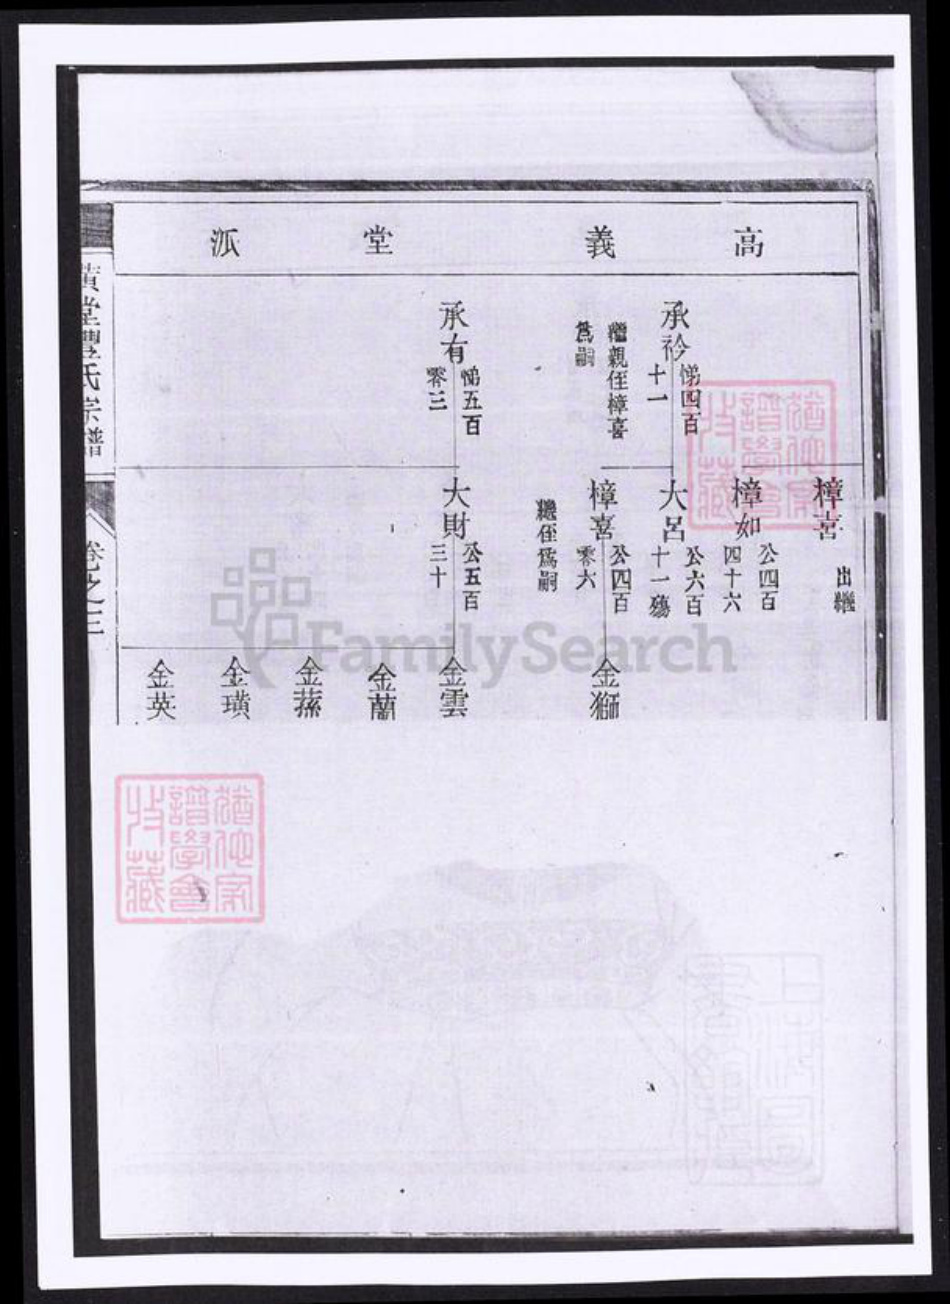 高義堂派
樟喜
出繼
樟如
公四百
四十六
承衿
悌四百
十一
繼親侄樟喜
爲嗣
大呂
公六百
十一殤
樟喜
公四百
零六
繼侄爲嗣
金獅
承有
悌五百
零三
大財
公五百
三十
金雲
金蘭
金蓀
金璜
金英
黃堂豐氏宗譜
卷之三
FamilySearch
猶他家譜學會收藏
猶他家譜學會收藏